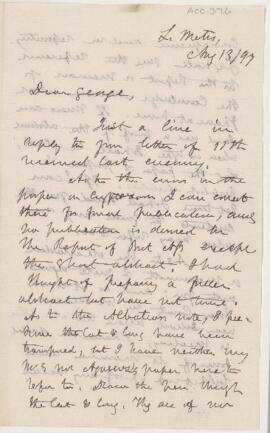 ACC-576
L. Metis,
Aug 13/97
Dear George,
Just a line in
reply to your letter of 11th
received last evening.
As to the errors in the
paper on I can correct
them for final publication, unless
no publication is desired in
the Report of Brit Ass except
the short abstract. I had
thought of preparing a fuller
abstract but have not time.
As to the note, I
the Lat & Long have been
transposed, but I have neither my
M.S. nor paper here to
refer to. the
the Lat & long. They are of no